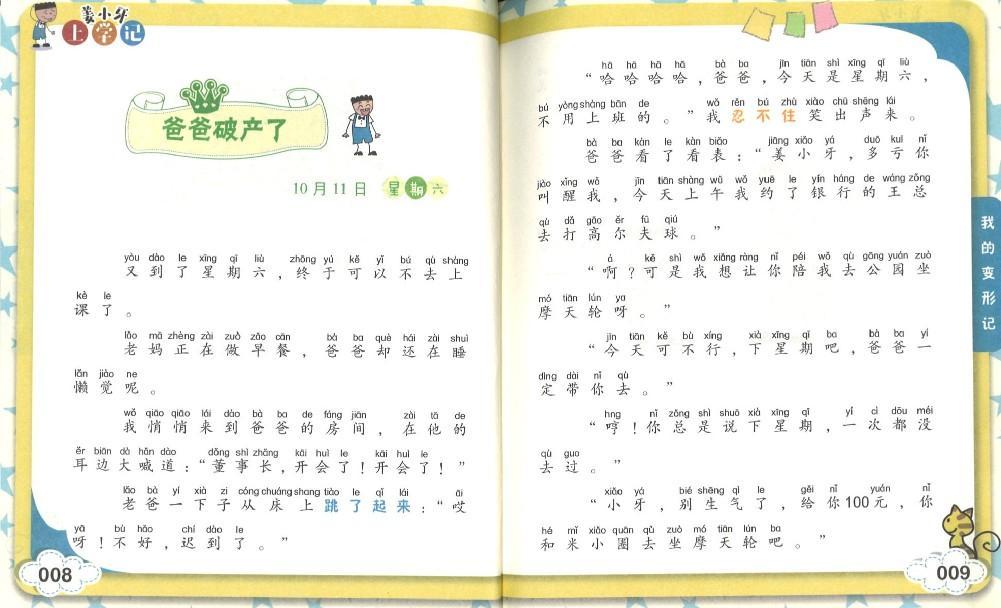 姜小牙
上学记
爸爸破产了
10月11日 星期六
yòu dào le xīng qī liù zhōng yú kě yǐ bú qù shàng
又到了星期六，终于可以不去上
kè le
课了。
lǎo mā zhèng zài zuò zǎo cān bà ba què hái zài shuì
老妈正在做早餐，爸爸却还在睡
lǎn jiào ne
懒觉呢。
wǒ qiāo qiāo lái dào bà ba de fáng jiān zài tā de
我悄悄来到爸爸的房间，在他的
ěr biān dà hǎn dào dǒng shì zhǎng kāi huì le kāi huì le
耳边大喊道：“董事长，开会了！开会了！”
lǎo bà yí xià zi cóng chuáng shang tiào le qǐ lái āi
老爸一下子从床上跳了起来：“哎
yā bù hǎo chí dào le
呀！不好，迟到了。”
008
hā hā hā hā bà ba jīn tiān shì xīng qī liù
“哈哈哈哈，爸爸，今天是星期六，
bú yòng shàng bān de wǒ rěn bú zhù xiào chū shēng lái
不用上班的。”我忍不住笑出声来。
bà ba kàn le kàn biǎo jiāng xiǎo yá duō kuī nǐ
爸爸看了看表：“姜小牙，多亏你
jiào xǐng wǒ jīn tiān shàng wǔ wǒ yuē le yín háng de wáng zǒng
叫醒我，今天上午我约了银行的王总
qù dǎ gāo ěr fū qiú
去打高尔夫球。”
á kě shì wǒ xiǎng ràng nǐ péi wǒ qù gōng yuán zuò
“啊？可是我想让你陪我去公园坐
mó tiān lún ya
摩天轮呀。”
jīn tiān kě bù xíng xià xīng qī ba bà ba yí
“今天可不行，下星期吧，爸爸一
dìng dài nǐ qù
定带你去。”
hng nǐ zǒng shì shuō xià xīng qī yí cì dōu méi
“哼！你总是说下星期，一次都没
qù guo
去过。”
xiǎo yá bié shēng qì le gěi nǐ yuán nǐ
“小牙，别生气了，给你100元，你
hé mǐ xiǎo quān qù zuò mó tiān lún ba
和米小圈去坐摩天轮吧。”
我的变形记
009